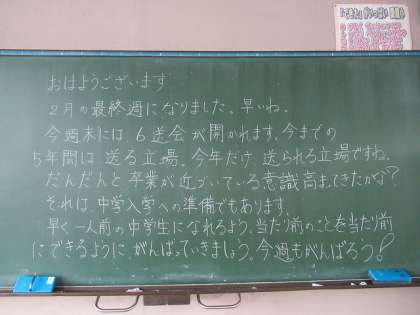 おはようございます
2月の最終週になりました。早いね。
今週末には 6送会が開かれます。今までの
5年間は 送る立場。今年だけ、送られる立場ですね。
だんだんと 卒業が近づいている意識高まってきたかな?
それは、中学入学への準備でもあります。
早く一人前の中学生になれるよう、当たり前のことを当たり前
にできるように、がんばっていきましょう。今週もがんばろう!